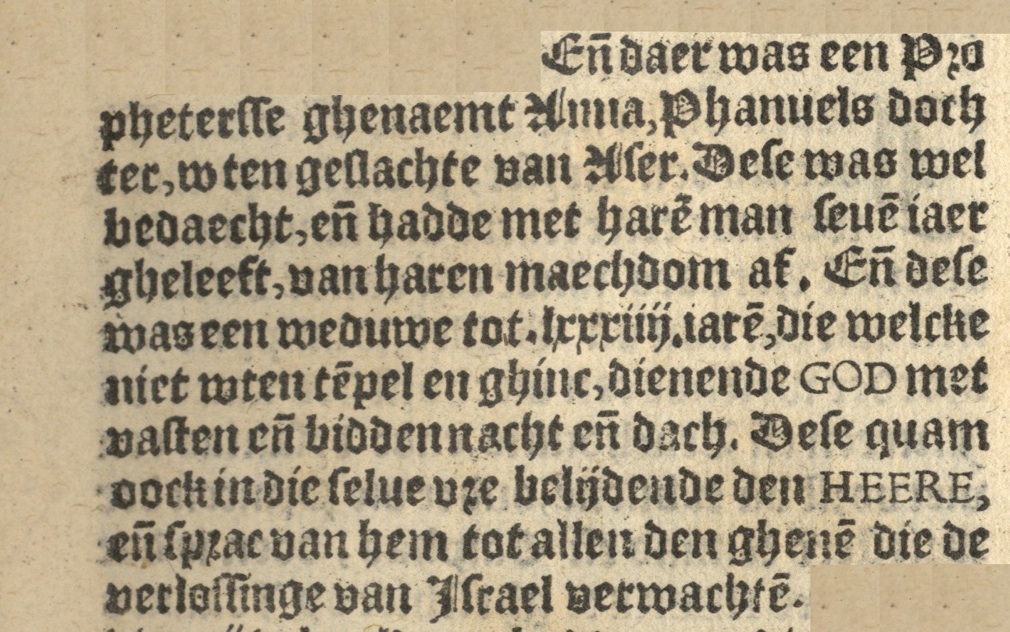 Eñ daer was een Pro
phetersse ghenaemt Anna, Phanuels doch
ter, wten geslachte van Aser. Dese was wel
bedaecht, eñ hadde met harē man seuē iaer
gheleeft, van haren maechdom af. Eñ dese
was een weduwe tot .lxxxiiij. iarē, die welcke
niet wten tēpel en ghinc, dienende GOD met
vasten eñ bidden nacht eñ dach. Dese quam
oock in die selue vre belijdende den HEERE,
eñ sprac van hem tot allen den ghenē die de
verlossinge van Israel verwachtē.